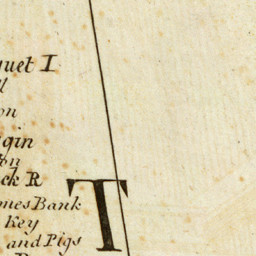 quet I
on
gin
on
ck R
mes Bank
Key
and Pigs
T